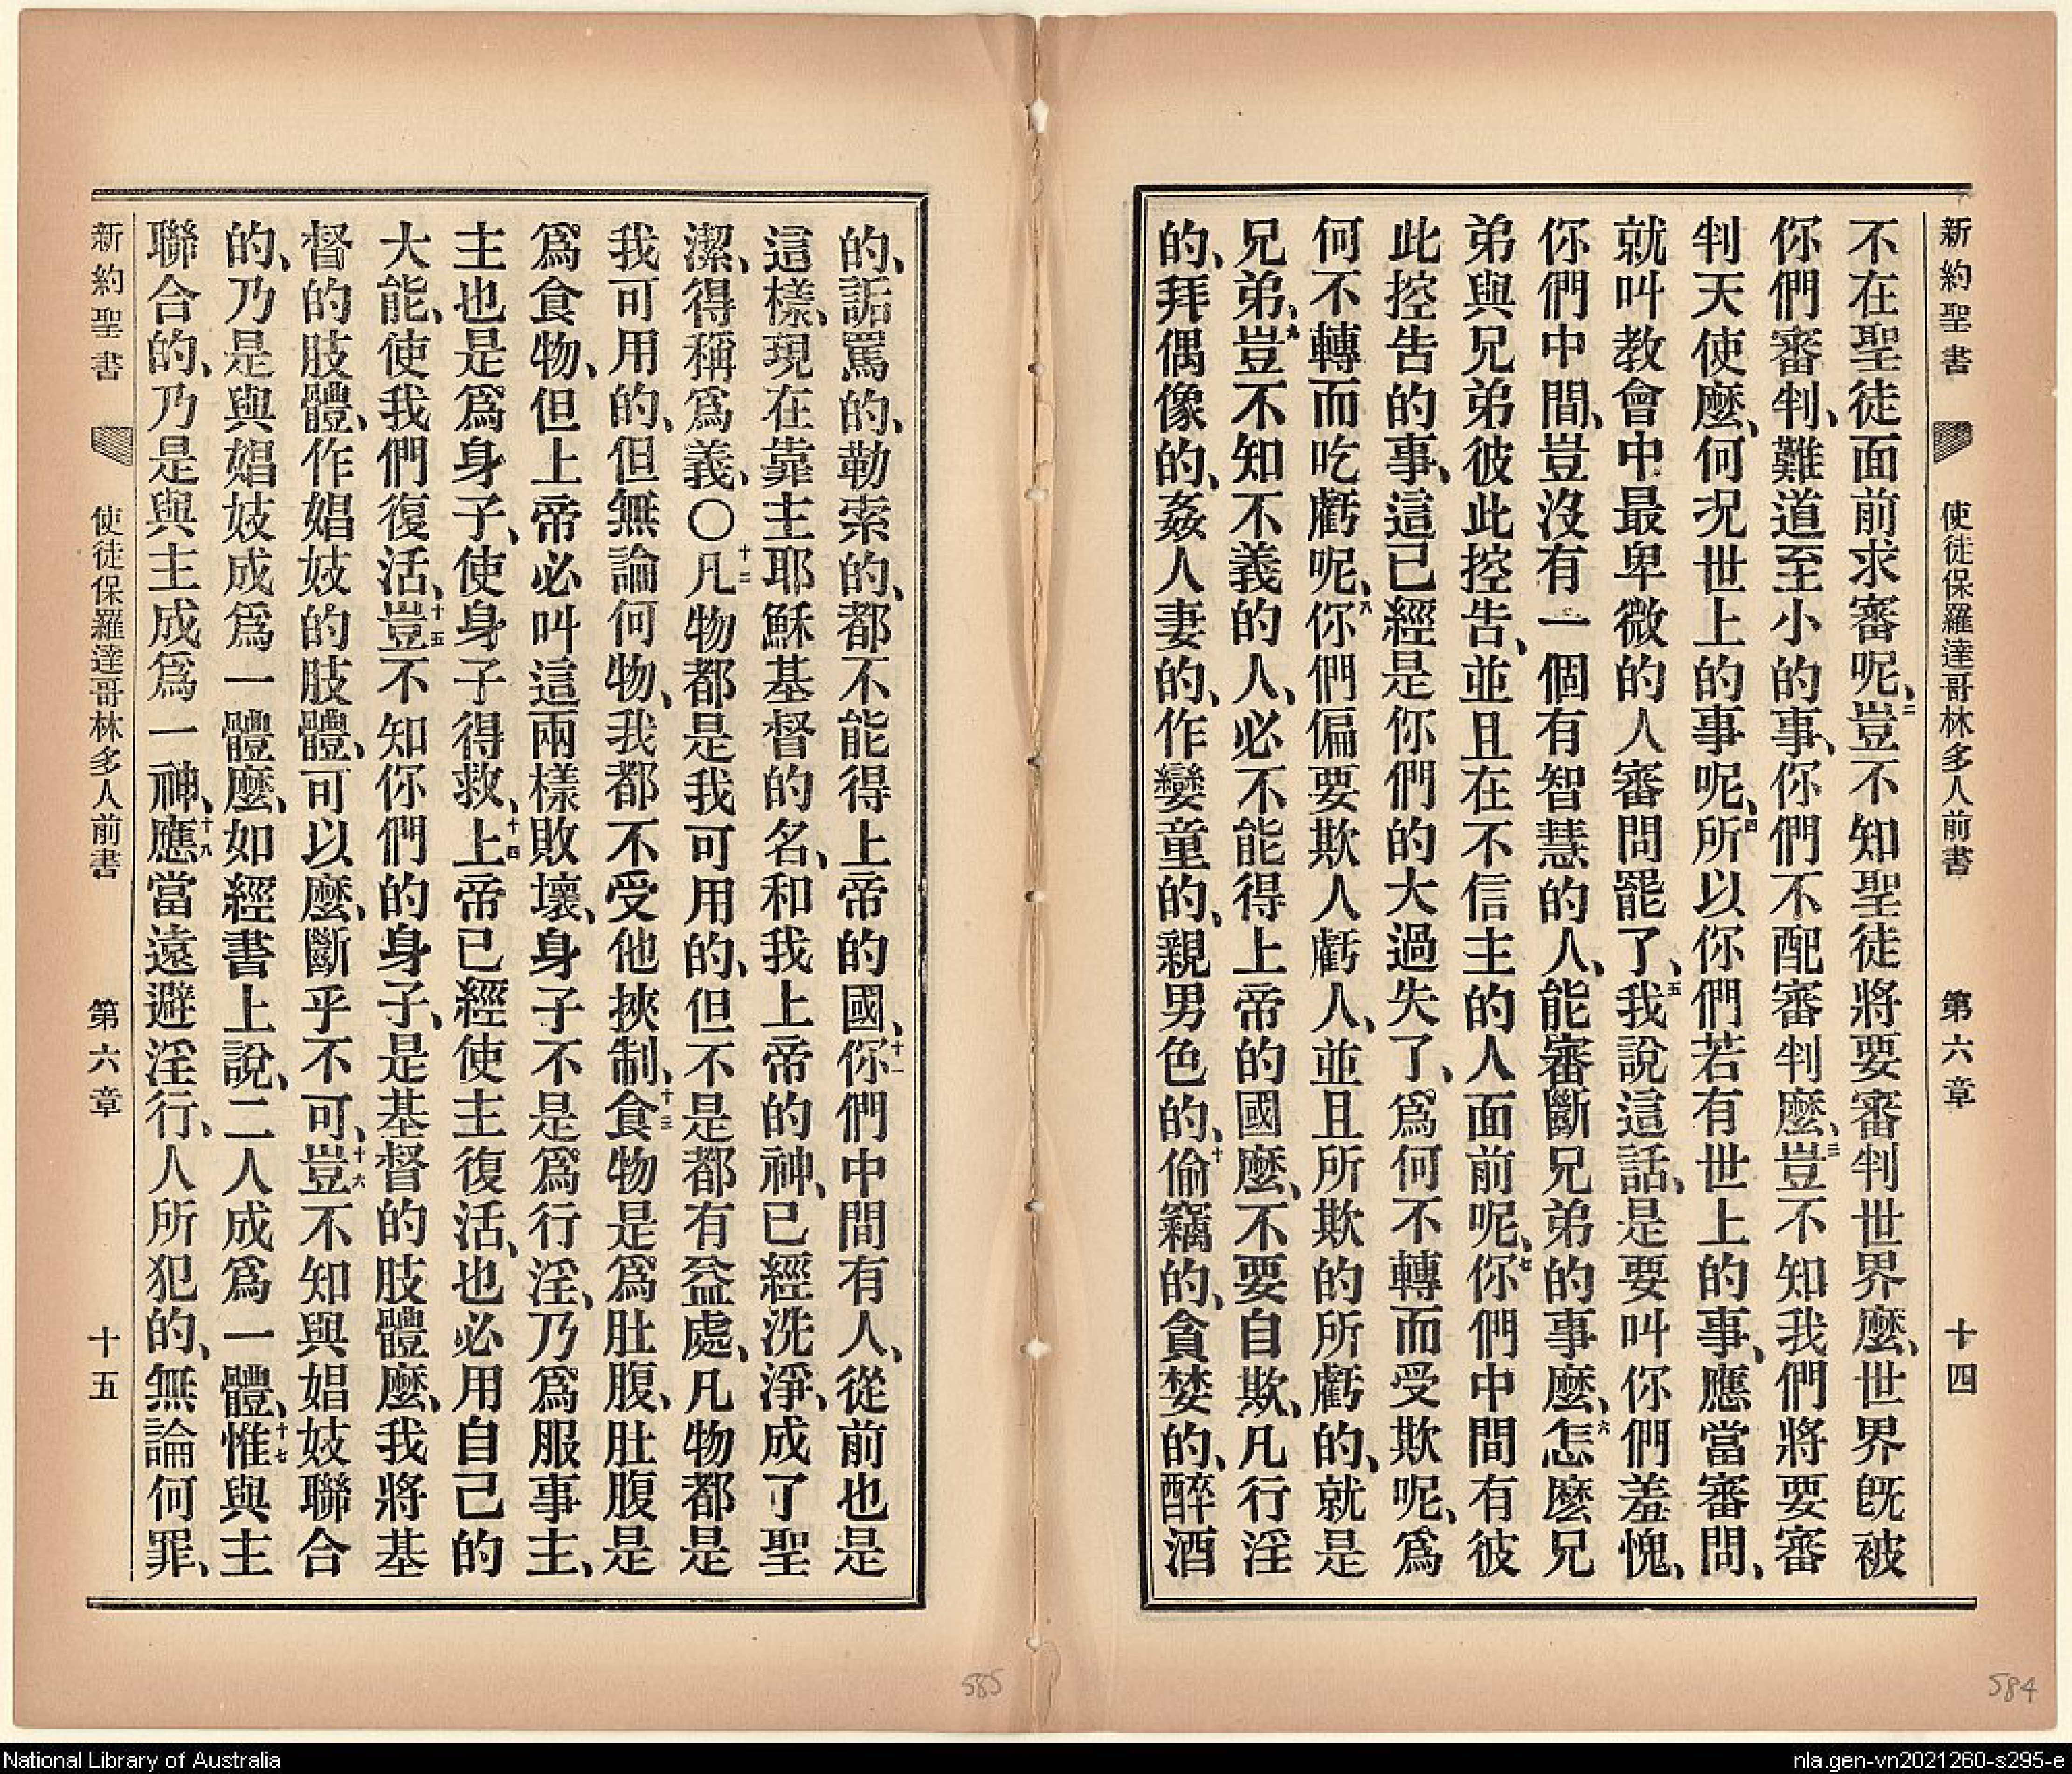 新約聖書 使徒保羅達哥林多人前書 第六章 十四
不在聖徒面前求審呢、二豈不知聖徒將要審判世界麼、世界旣被
你們審判、難道至小的事、你們不配審判麼、三豈不知我們將要審
判天使麼、何況世上的事呢、四所以你們若有世上的事、應當審問、
就叫教會中最卑微的人審問罷了、五我說這話、是要叫你們羞愧、
你們中間、豈沒有一個有智慧的人、能審斷兄弟的事麼、六怎麼兄
弟與兄弟彼此控告、並且在不信主的人面前呢、七你們中間有彼
此控告的事、這已經是你們的大過失了、爲何不轉而受欺呢、爲
何不轉而吃虧呢、八你們偏要欺人虧人、並且所欺的所虧的、就是
兄弟、九豈不知不義的人、必不能得上帝的國麼、不要自欺、凡行淫
的、拜偶像的、姦人妻的、作孌童的、親男色的、十偷竊的、貪婪的、醉酒
的、詬罵的、勒索的、都不能得上帝的國、十一你們中間有人、從前也是
這樣、現在靠主耶穌基督的名、和我上帝的神、已經洗淨、成了聖
潔、得稱爲義、〇十二凡物都是我可用的、但不是都有益處、凡物都是
我可用的、但無論何物、我都不受他挾制、十三食物是爲肚腹、肚腹是
爲食物、但上帝必叫這兩樣敗壞、身子不是爲行淫、乃爲服事主、
主也是爲身子、使身子得救、十四上帝已經使主復活、也必用自己的
大能、使我們復活、十五豈不知你們的身子、是基督的肢體麼、我將基
督的肢體、作娼妓的肢體、可以麼、斷乎不可、十六豈不知與娼妓聯合
的、乃是與娼妓成爲一體麼、如經書上說、二人成爲一體、十七惟與主
聯合的、乃是與主成爲一神、十八應當遠避淫行、人所犯的、無論何罪、
新約聖書 使徒保羅達哥林多人前書 第六章 十五
585
584
National Library of Australia
nla.gen-vn2021260-s295-e